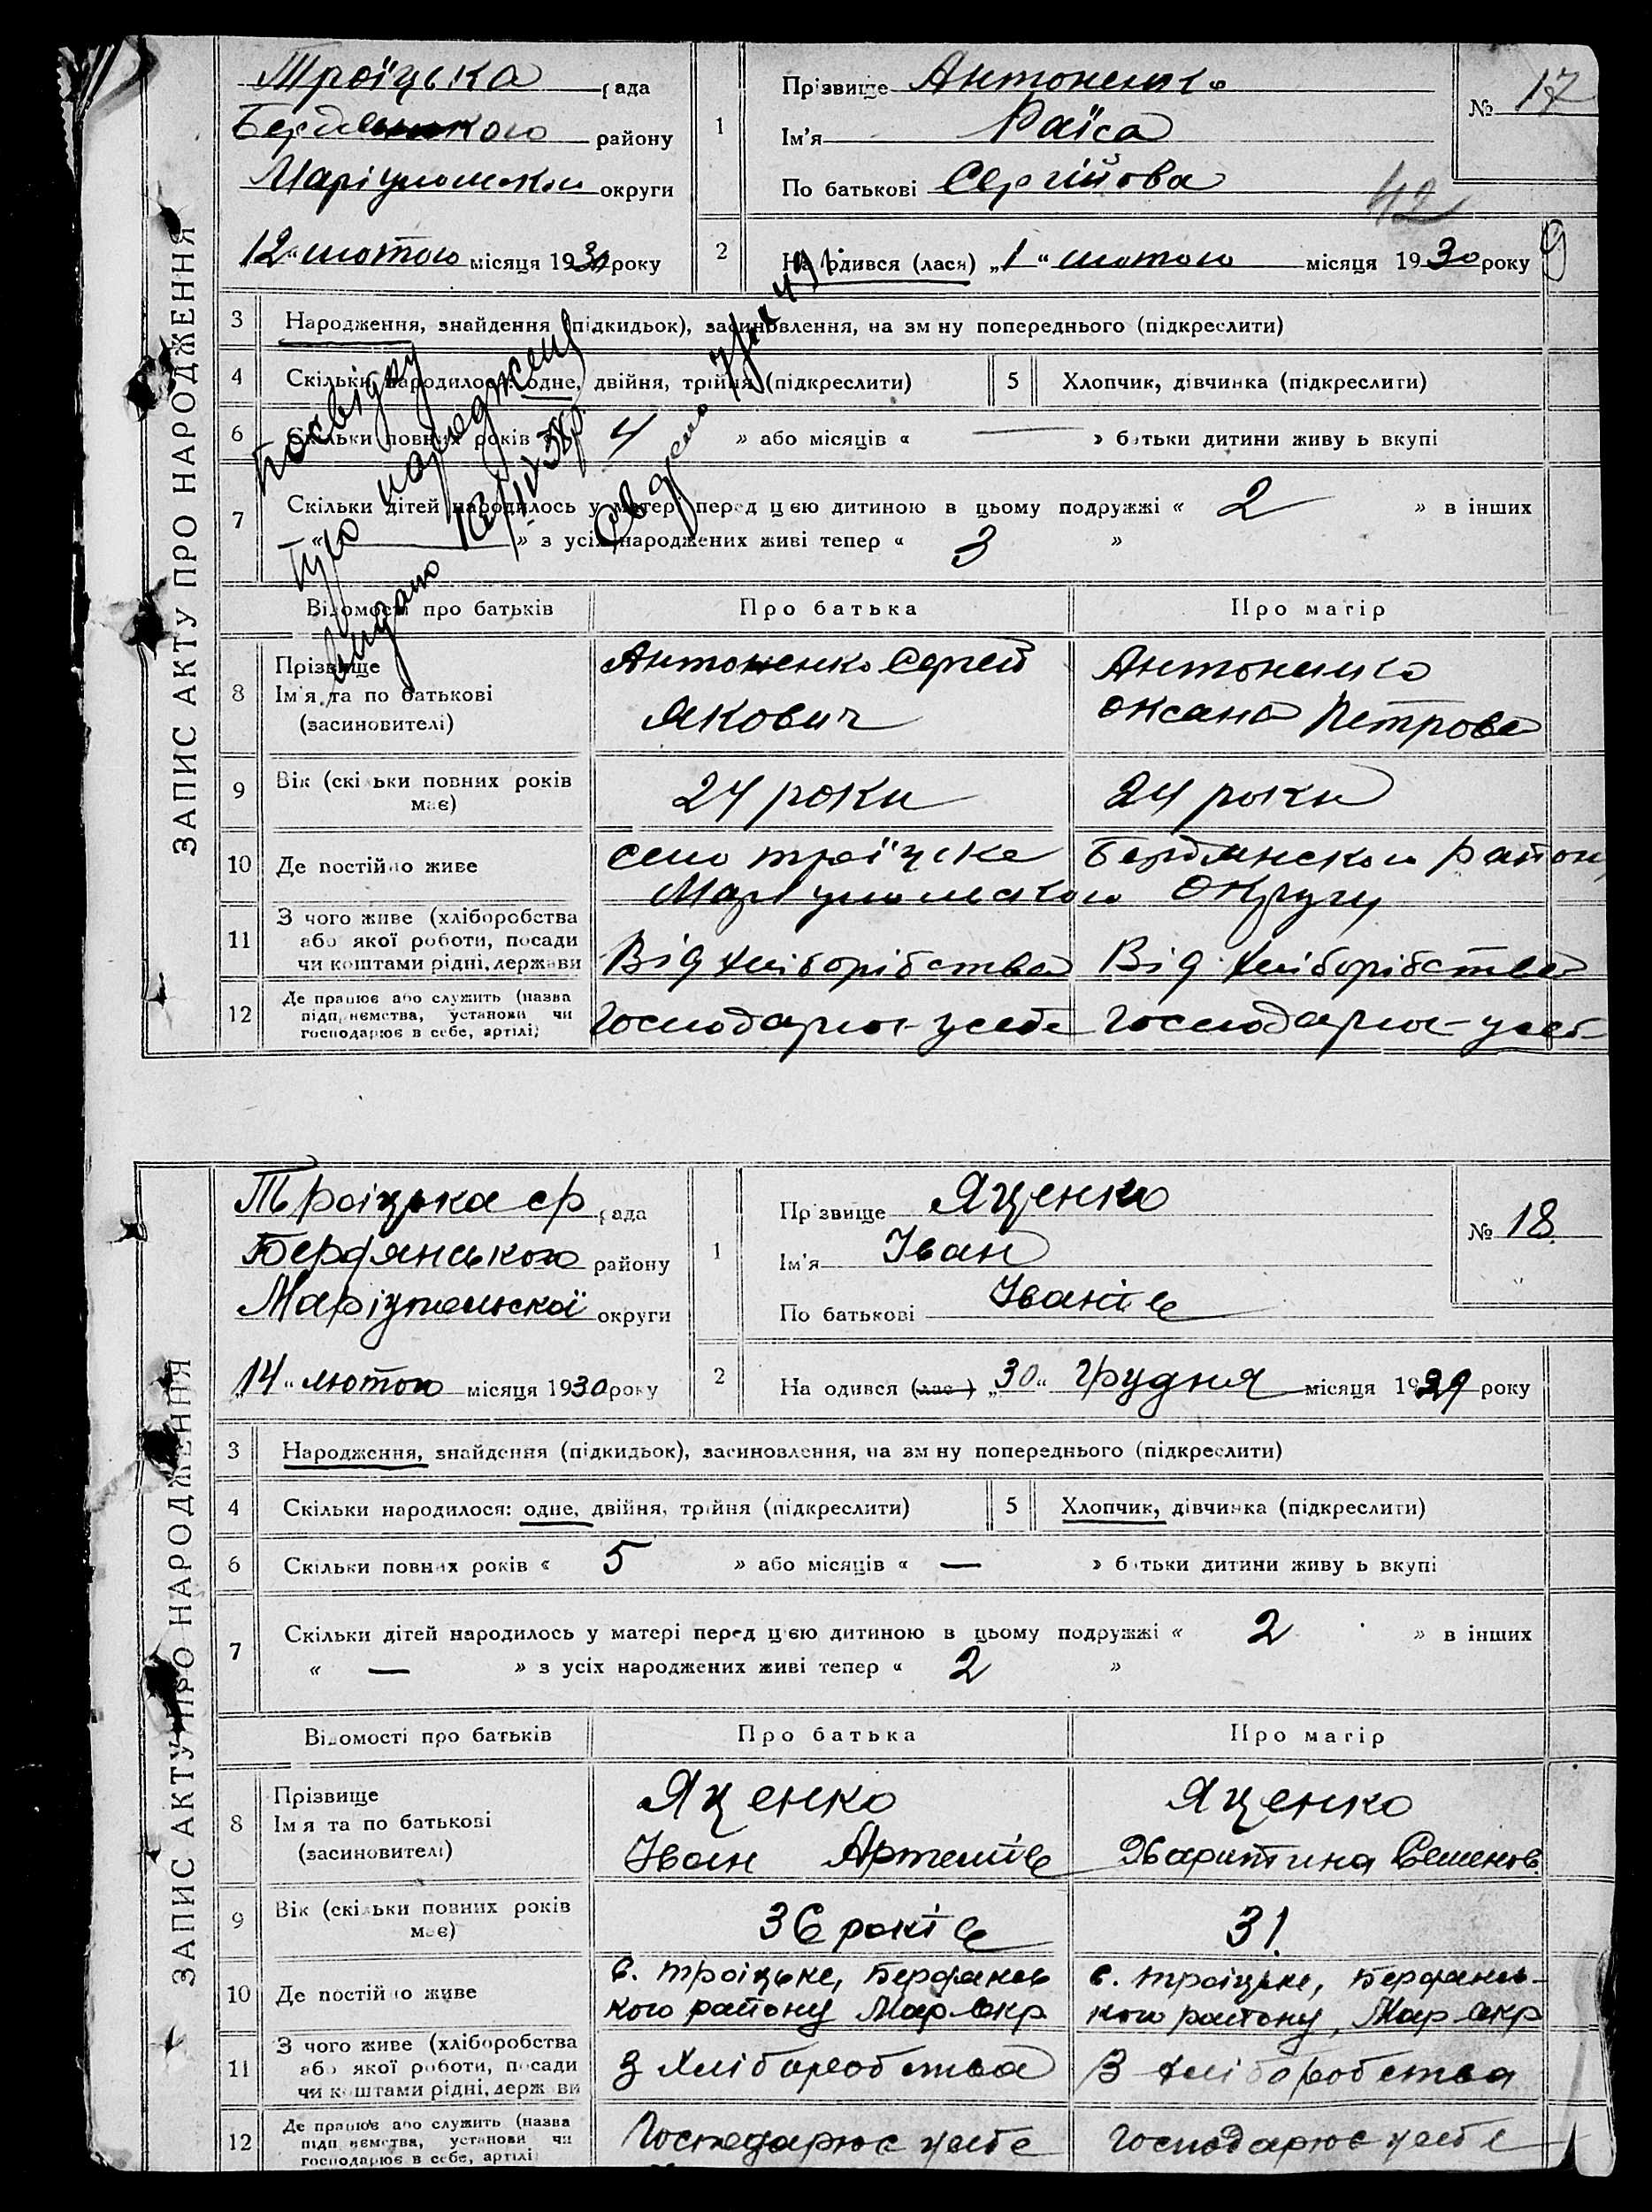 ЗАПИС АКТУ ПРО НАРОДЖЕННЯ
Троїцька рада
Бердянського району
Маріупольскої округи
12 " лютого місяця 1930 року
1
Прізвище Антоненко
Ім'я Раїса
По батькові Сергійова
№ 17
42
2
На одився (лася) „1 " лютого місяця 1930 року
9
3 Народження, знайдення (підкидьок), засиновлення, на зм ну попереднього (підкреслити)
4 Скільки народилося: одне, двійня, трійня (підкреслити) 5 Хлопчик, дівчинка (підкреслити)
6 Скільки повних років 4 » або місяців « — » батьки дитини живу ь вкупі
7 Скільки дітей народилось у матері перед цією дитиною в цьому подружжі « 2 » в інших
« — » з усіх народжених живі тепер « 3 »
посвідку
про народжен
видано 13/IV 38р.
Відомості про батьків Про батька Про матір
8 Прізвище
Ім'я та по батькові
(засиновителі)
Антоненко Сергей
Якович
Антоненко
Оксана Петрова
9 Вік (скільки повних років
має)
24 роки 24 роки
10 Де постійно живе
село троїцке Бердянского район
Маріупольского Округу
11 З чого живе (хліборобства
або якої роботи, посади
чи коштами рідні, держави
Від хліборібства Від хліборібства
12 Де працює або служить (назва
підп ємства, установи чи
господарює в себе, артілі)
Господарює усебе Господарює усеб
ЗАПИС АКТУ ПРО НАРОДЖЕННЯ
Троіцька ср рада
Бердянського району
Маріупольскої округи
„14 " лютого місяця 1930 року
1
Пр звище Яценко
Ім'я Іван
По батькові Іванів
№ 18.
2
На одився (лас ) „30 " грудня місяця 1929 року
3 Народження, знайдення (підкидьок), засиновлення, на зм ну попереднього (підкреслити)
4 Скільки народилося: одне, двійня, трійня (підкреслити) 5 Хлопчик, дівчинка (підкреслити)
6 Скільки повних років « 5 » або місяців « — » батьки дитини живу ь вкупі
7 Скільки дітей народилось у матері перед цією дитиною в цьому подружжі « 2 » в інших
« — » з усіх народжених живі тепер « 2 »
Відомості про батьків Про батька Про матір
8 Прізвище
Ім'я та по батькові
(засиновителі)
Яценко
Іван Артемів
Яценко
Харитина Семенов.
9 Вік (скільки повних років
має)
36 років 31.
10 Де постійно живе
с. троіцьке, Бердянсь
кого району Мар Окр
с. троіцьке, Бердянсь-
кого району, Мар Окр
11 З чого живе (хліборобства
або якої роботи, посади
чи коштами рідні, держ ви
З Хліборобства З хліборобства
12 Де працює або служить (назва
підп ємства, установи чи
господарює в себе, артілі)
Господарює усебе Господарює усебе